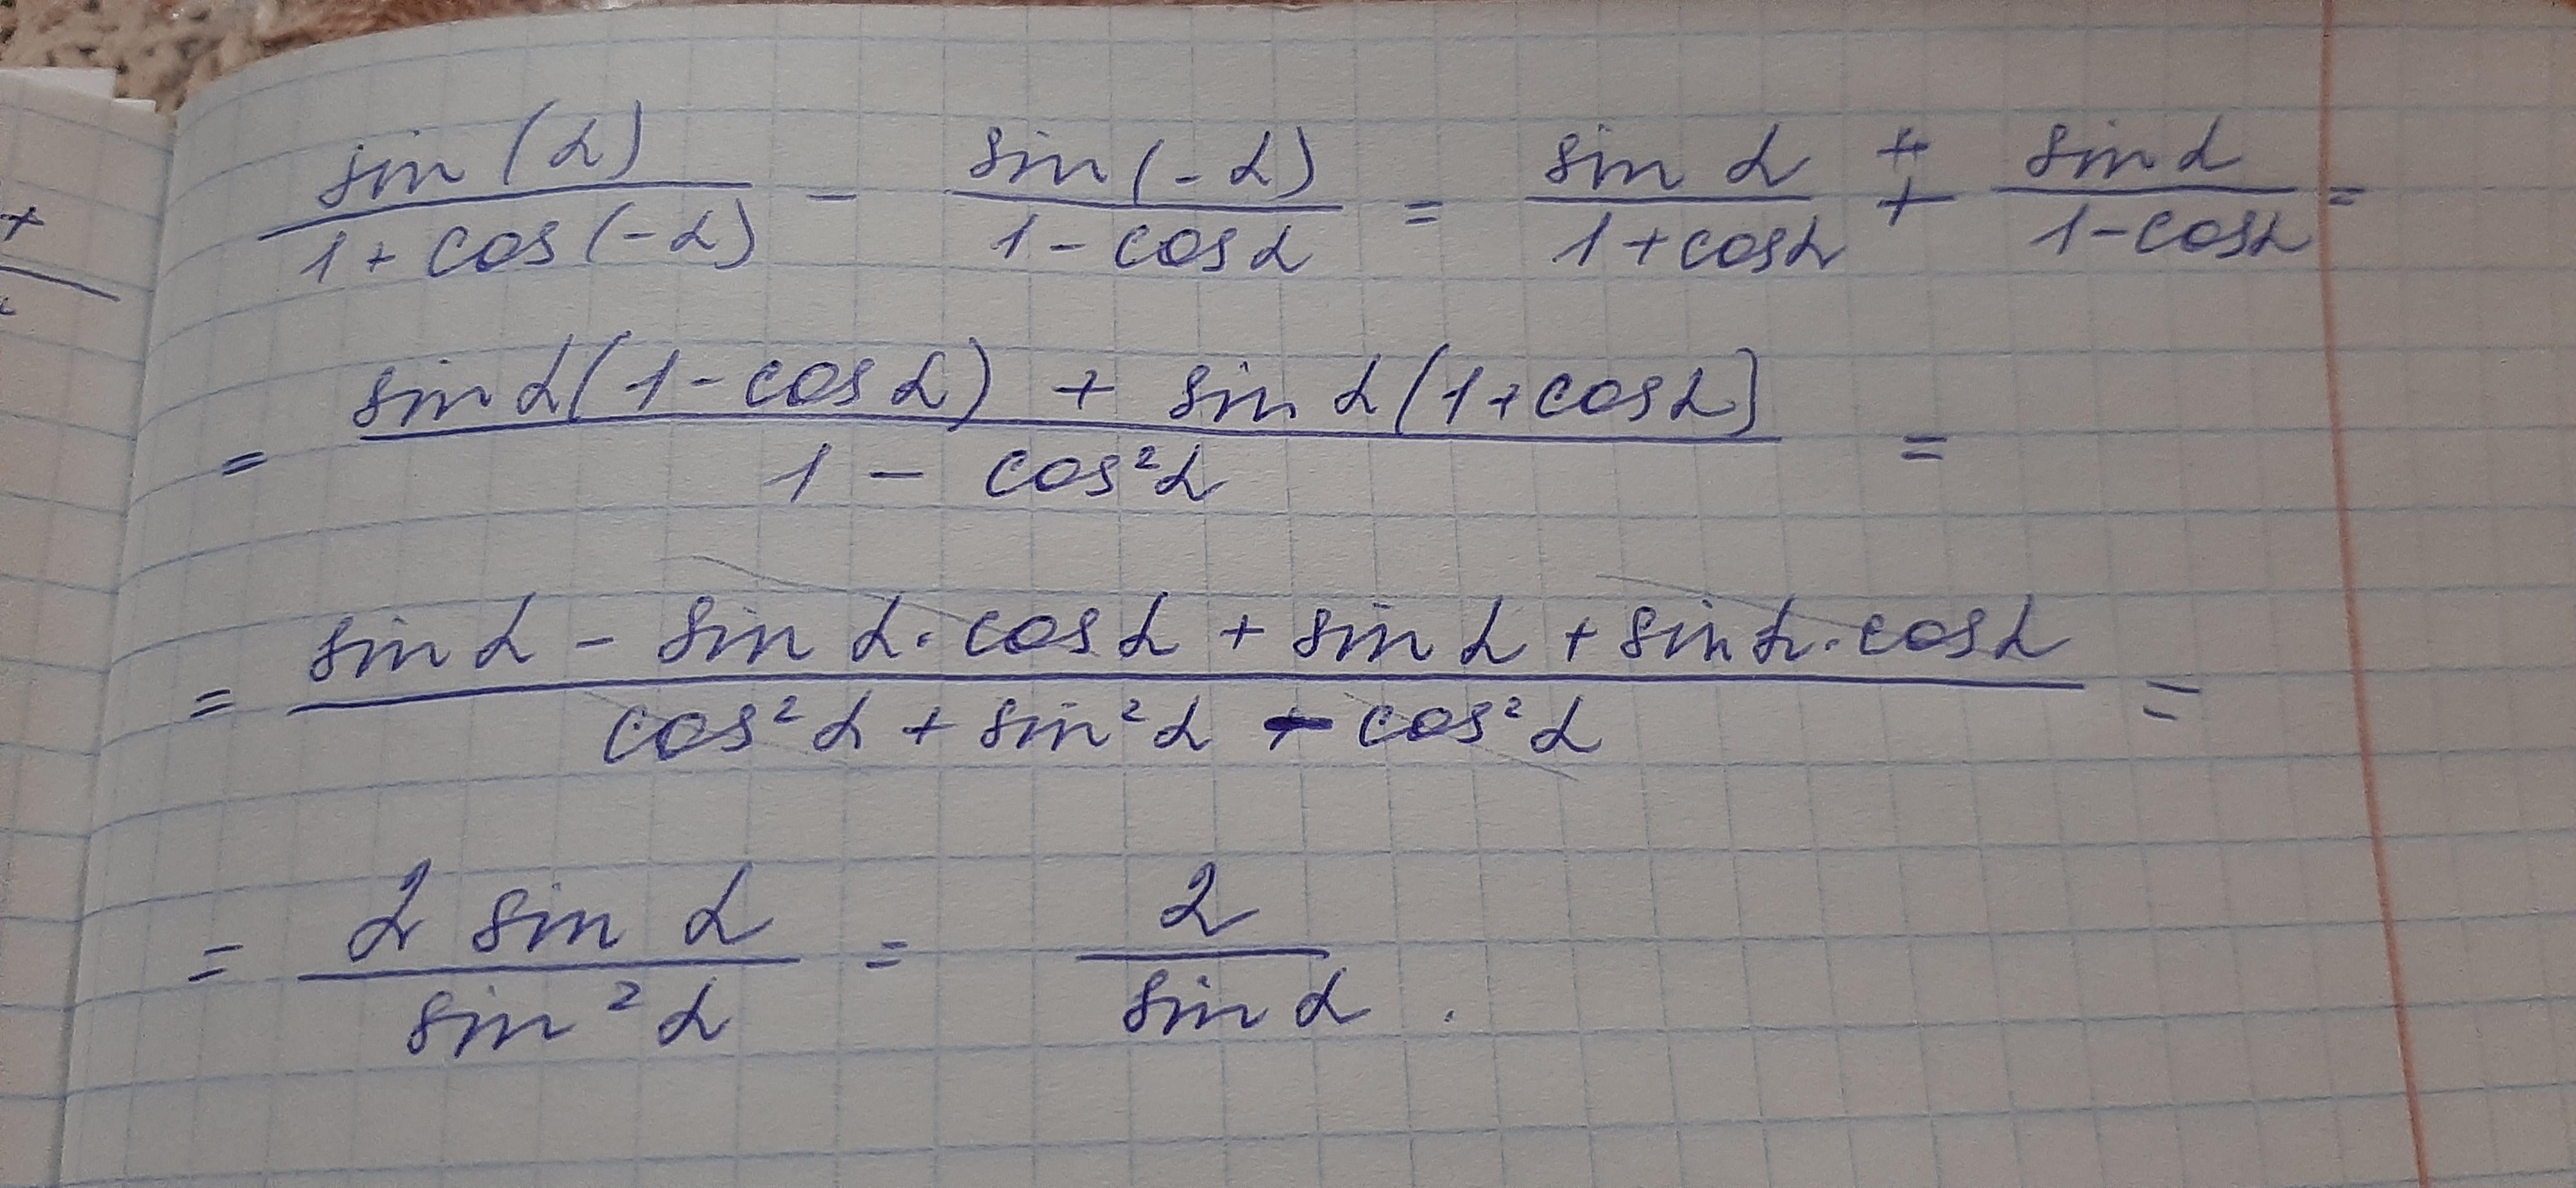 sin(α)/(1+cos(-α)) - sin(-α)/(1-cosα) = sin α/(1+cosα) + sin α/(1-cosα) =
= (sin α(1-cos α) + sin α(1+cosα])/(1 - cos²α) =
= (sin α - sin α·cosα + sin α + sin α·cosα)/(cos²α + sin²α - cos²α) =
= 2 sin α/sin²α = 2/sin α.